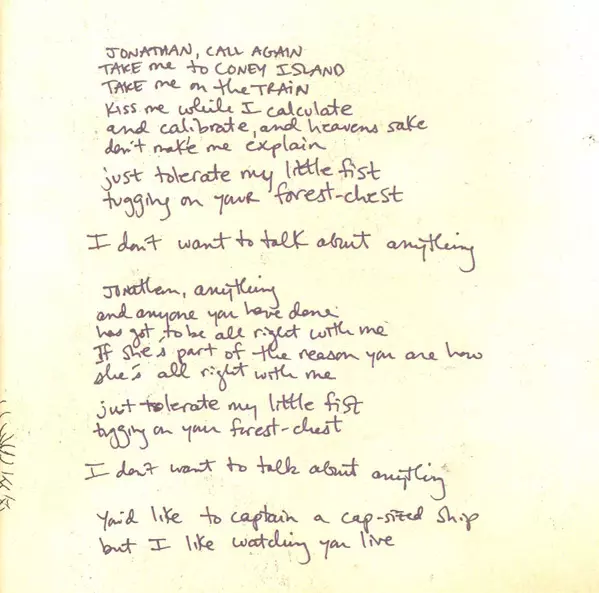 JONATHAN, CALL AGAIN
TAKE me to CONEY ISLAND
TAKE me on the TRAIN
Kiss me while I calculate
and calibrate, and heavens sake
don't make me explain
just tolerate my little fist
tugging on your forest-chest
I don't want to talk about anything
Jonathan, anything
and anyone you have done
has got to be all right with me
If she's part of the reason you are how
she's all right with me
just tolerate my little fist
tugging on your forest-chest
I don't want to talk about anything
You'd like to captain a cap-sized ship
but I like watching you live